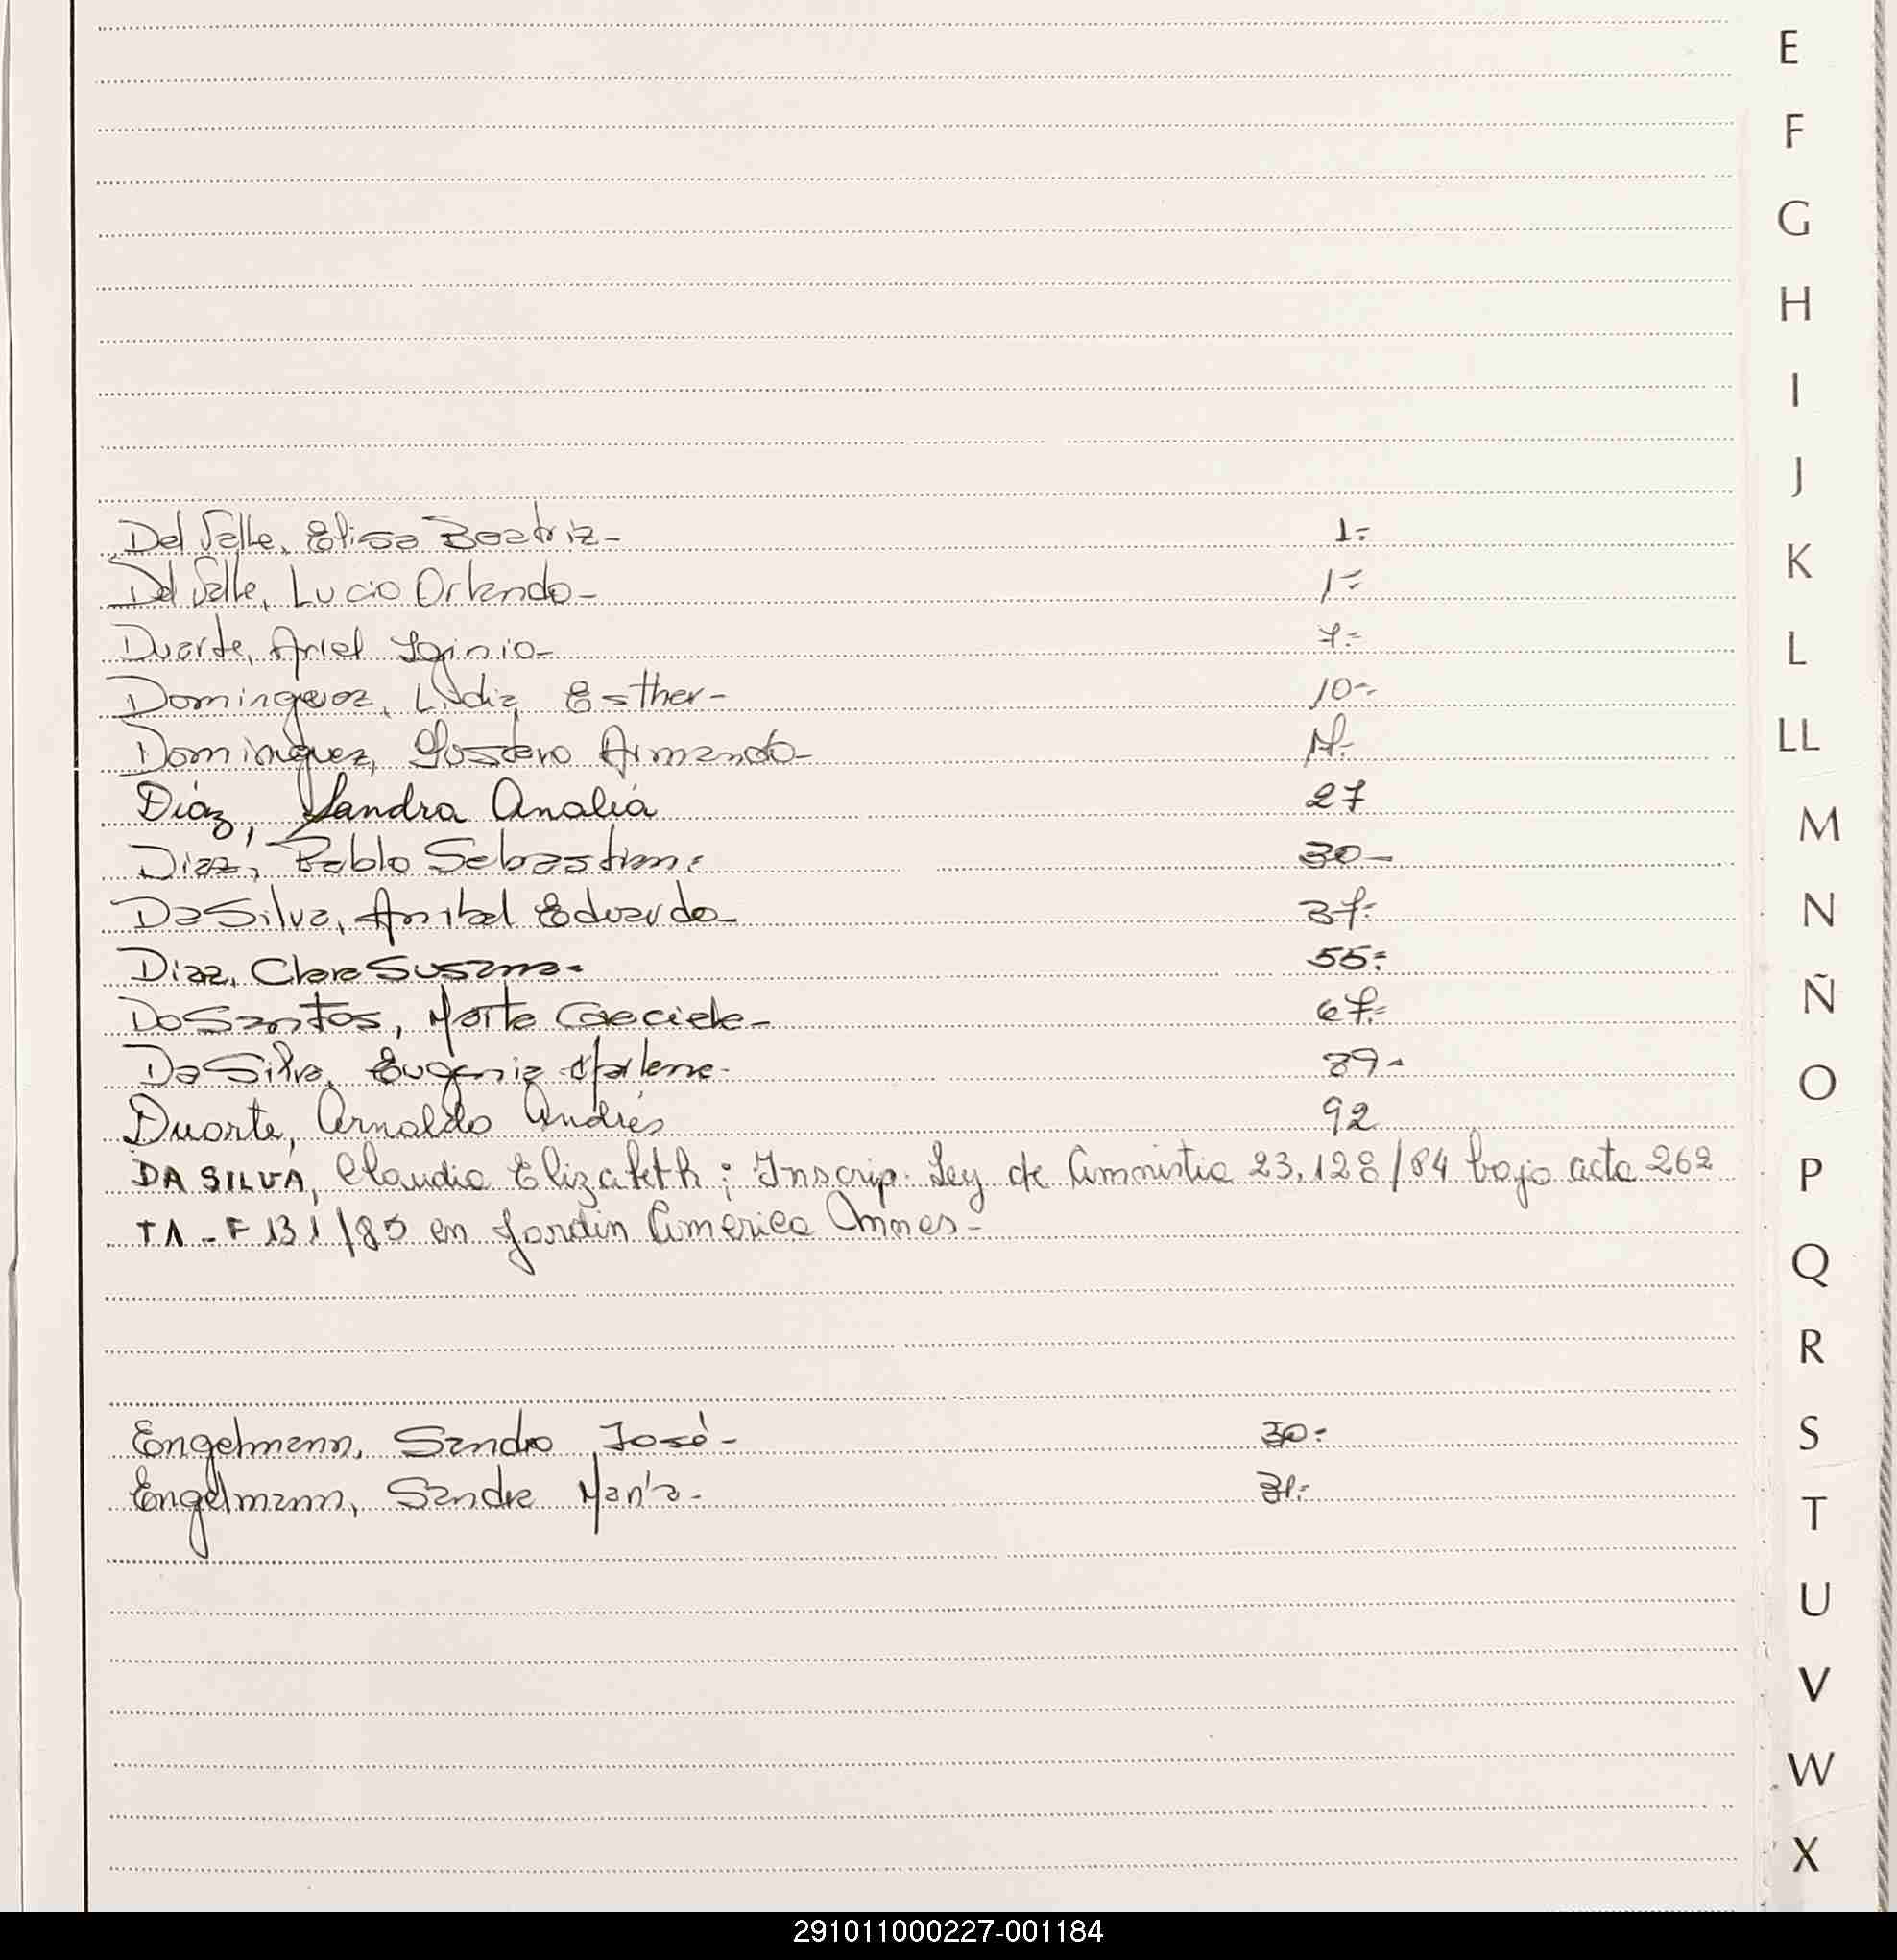 E
F
G
H
I
J
Del Valle, Elisa Beatriz- 1-
K
Del Valle, Lucio Orlando- 1-
Duarte, Ariel Iginio- 7-
L
Dominguez, Lidia Esther- 10-
LL
Dominguez, Gustavo Armando-
Díaz, Sandra Analía 27
M
Diaz, Pablo Sebastian- 30-
N
Da Silva, Anibal Eduardo- 37-
Diaz, Clara Susana- 55-
Ñ
Do Santos, Marta Graciela- 67-
Da Silva, Eugenia Marlene- 89-
O
Duarte, Arnaldo Andrés 92
P
DA SILVA, Claudia Elizabeth; Inscrip. Ley de Amnistia 23.128/84 bajo acta 262
TA - F 131/85 en Jardin America Mnes-
Q
R
S
Engelmann, Sandro José- 30-
Engelmann, Sandra María- 31-
T
U
V
W
X
291011000227-001184